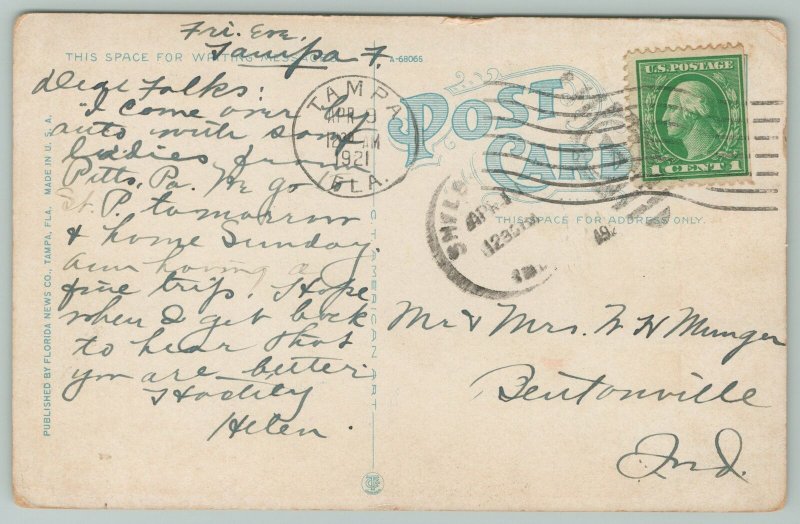 Fri. Eve.
Tampa F.
THIS SPACE FOR WRITING MESSAGES
A-68066
Dear Folks:
I come over by
auto with some
ladies from
Pitts. Pa. We go
St. P. tomorrow
& home Sunday.
am having a
fine trip. Hope
when I get back
to hear that
you are better.
Hastily
Helen.
PUBLISHED BY FLORIDA NEWS CO., TAMPA, FLA. MADE IN U. S. A.
C. T. AMERICAN ART
TAMPA
APR 9
12 AM
1921
FLA.
POST
CARD
U.S. POSTAGE
1 CENT 1
THIS SPACE FOR ADDRESS ONLY.
Mr & Mrs. W H Munger
Bentonville
Ind.